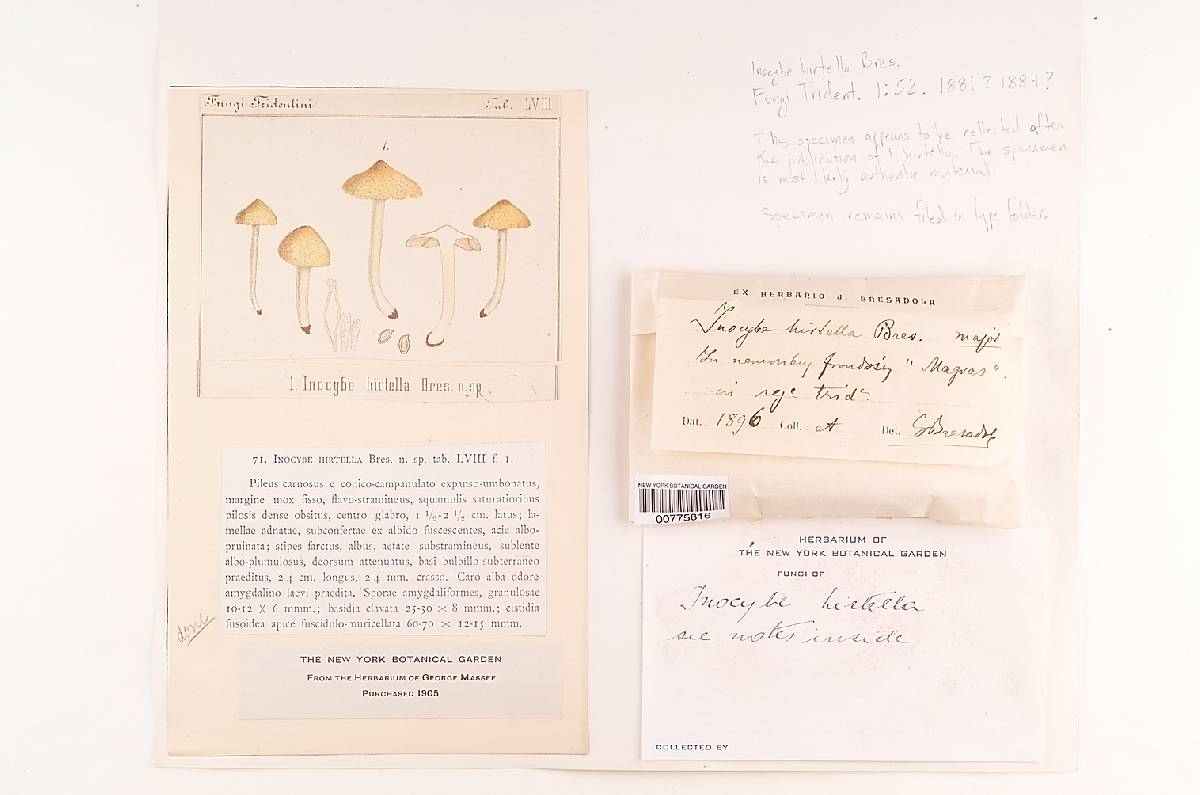 Fungi Tridentini Tab. LVIII
1.
1. Inocybe hirtella Bres. n. sp.
71. INOCYBE HIRTELLA Bres. n. sp. tab. LVIII f. 1.
Pileus carnosus e conico-campanulato expanso-umbonatus,
margine mox fisso, flavo-stramineus, squamulis saturatioribus
pilosis dense obsitus, centro glabro, 1 1/2-2 1/2 cm. latus; la-
mellae adnatae, subconfertae ex albido fuscescentes, acie albo-
pruinata; stipes farctus, albus, aetate substramineus, sublente
albo-plumulosus, deorsum attenuatus, basi bulbillo subterraneo
praeditus, 2-4 cm. longus, 2-4 mm. crasso. Caro alba odore
amygdalino laevi praedita. Sporae amygdaliformes, granulosae
10-12 X 6 mmm.; basidia clavata 25-30 × 8 mmm.; cistidia
fusoidea apice fuscidulo-muricellata 60-70 × 12-15 mmm.
THE NEW YORK BOTANICAL GARDEN
FROM THE HERBARIUM OF GEORGE MASSEE
PURCHASED 1905
Inocybe hirtella Bres.
Fungi Trident. 1:52. 1881? 1884?
This specimen appears to be collected after
the publication of I. hirtella. The specimen
is most likely authentic material.
Specimen remains filed in type folder.
EX HERBARIO J. BRESADOLA
Inocybe hirtella Bres. major
In frondosis "Magras".
Dat. 1896 Coll. et De. Bresadola
NEW YORK BOTANICAL GARDEN
00775816
HERBARIUM OF
THE NEW YORK BOTANICAL GARDEN
FUNGI OF
Inocybe hirtella
see notes inside
COLLECTED BY